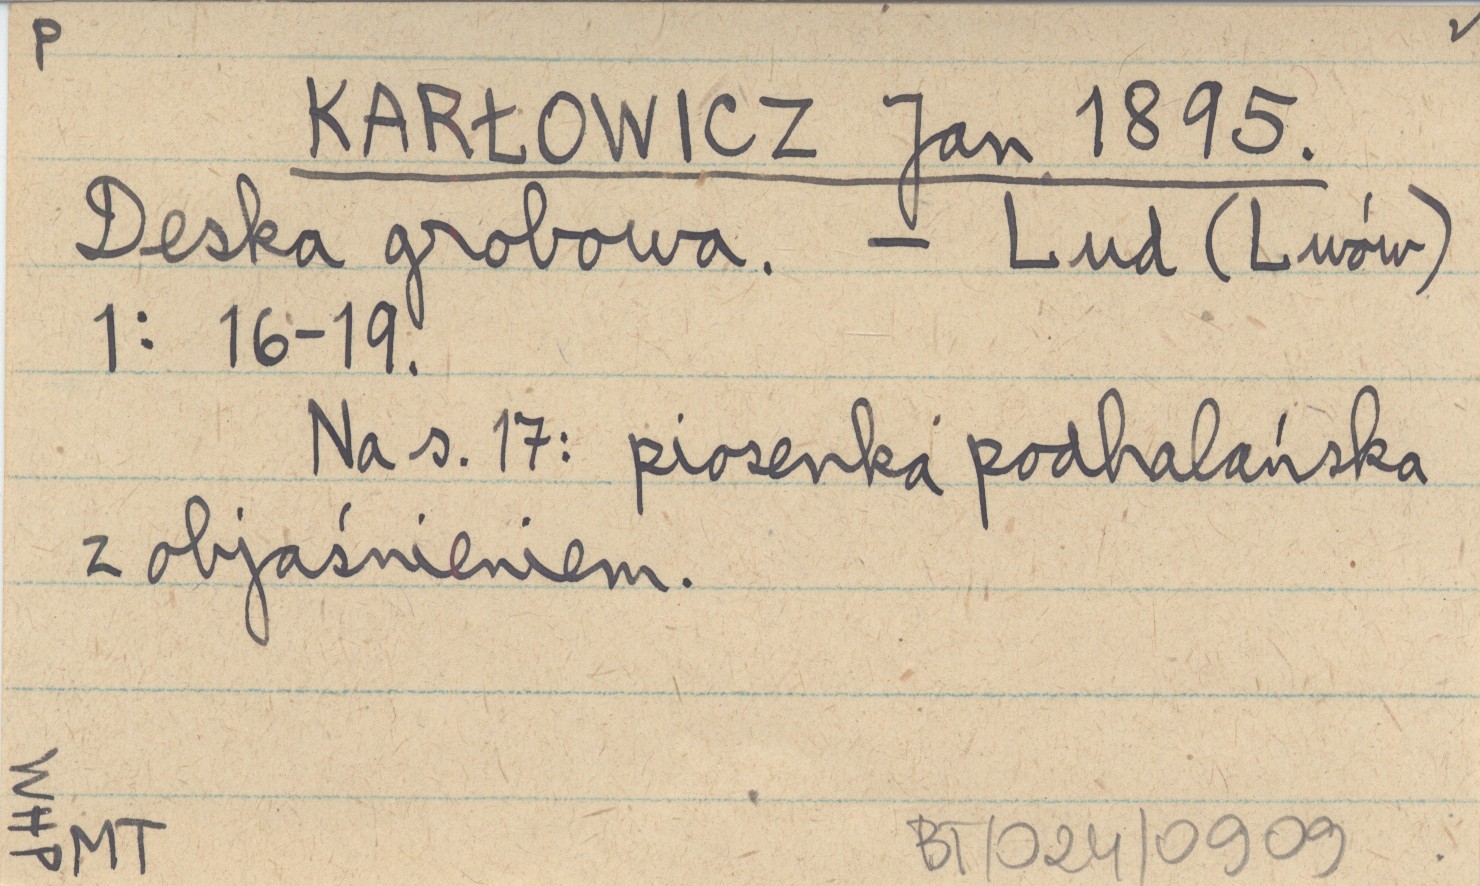 P
KARŁOWICZ Jan 1895.
Deska grobowa. – Lud (Lwów)
1: 16-19.
Na s. 17: piosenka podhalańska
z objaśnieniem.
WHP
MT
BT/024/0909